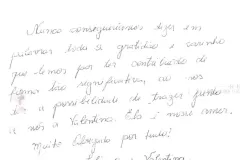 Nunca conseguiremos dizer em
palavras toda a gratidão e carinho
que temos por ter contribuído de
forma tão significativa, ao nos
a possibilidade de trazer junto
a nós a Valentina. Ela é nosso amor.
Muito Obrigada por tudo!
Valentina